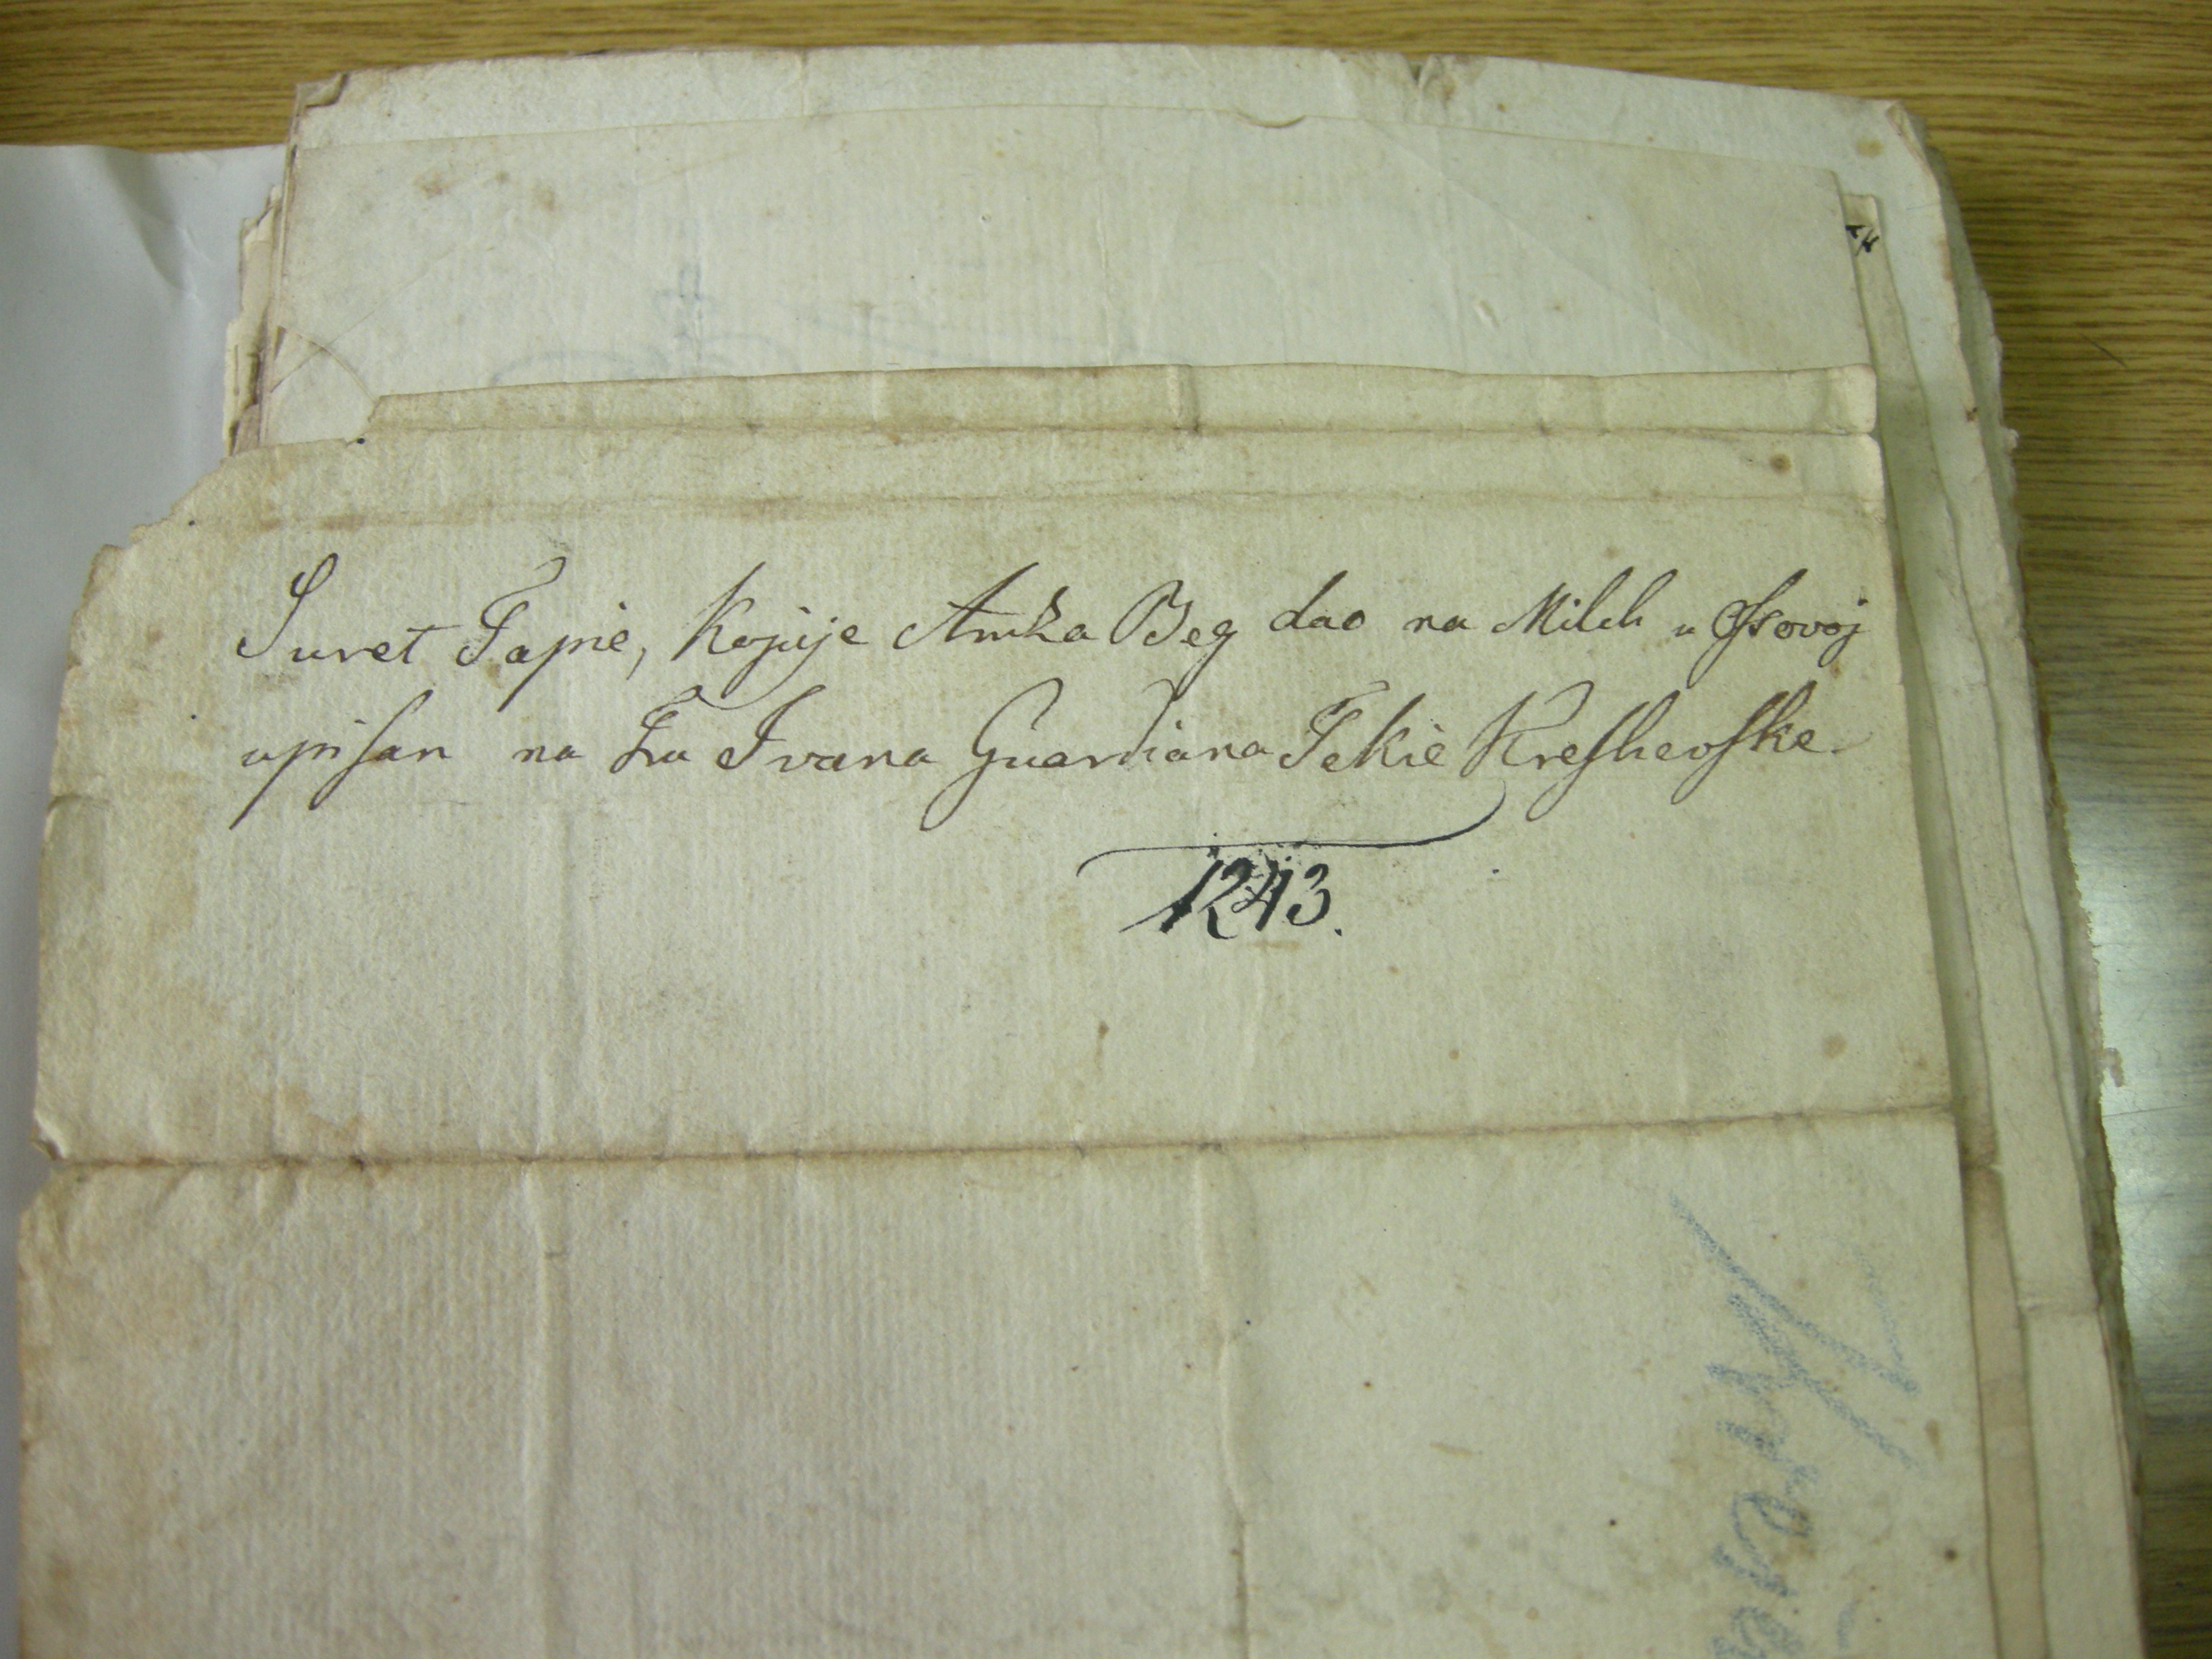 Suret Tapie, Kojuje Amza Beg dao na Milch u Ossovoj
upisan na Fra Ivana Guardiana Tekie Kreshevske.
1243.